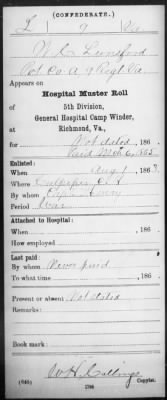 (CONFEDERATE.)
L 9 Va.
Pvt Co. A 9 Regt Va.
Appears on
Hospital Muster Roll
of
5th Division,
General Hospital Camp Winder,
at
Richmond, Va.,
for Not dated, 186
Paid Mch 6, 1865
Enlisted:
When Aug 1, 186
Where Culpeper C.H.
By whom
Period War
Attached to Hospital:
When , 186 .
How employed
Last paid:
By whom Never paid
To what time , 186 .
Present or absent Not stated
Remarks:
Book mark:
W. H. Collings
(646) Copyist.